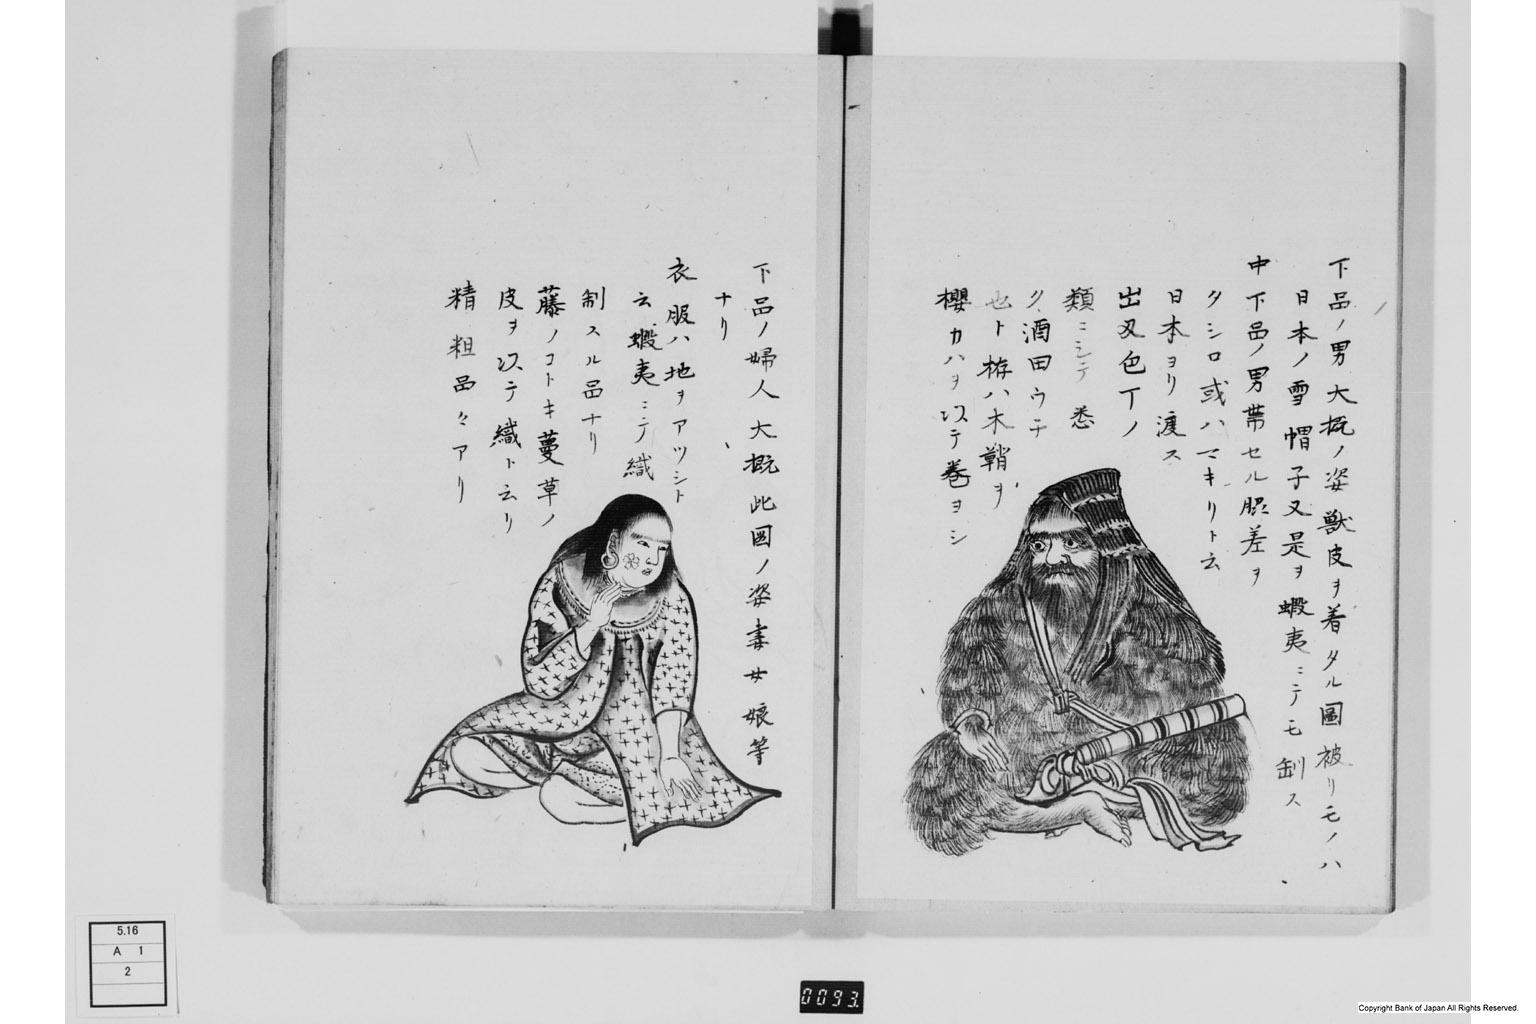 下品ノ男大概ノ姿獣皮ヲ着タル圖被リモノハ
日本ノ雪帽子又是ヲ蝦夷ニテモ制ス
中下品ノ男帯セル脇差ヲ
タシロ或ハマキリト云
日本ヨリ渡ス
出刄包丁ノ
類ニシテ悉
ク酒田ウチ
也ト柄ハ木鞘ヲ
櫻カハヲ以テ巻ヨシ
下品ノ婦人大概此図ノ姿妻女娘等
ナリ
衣服ハ地ヲアツシト
云蝦夷ニテ織
制スル品ナリ
藤ノコトキ蔓草ノ
皮ヲ以テ織ト云リ
精粗品々アリ
5.16
A 1
2
0093.
Copyright Bank of Japan All Rights Reserved.